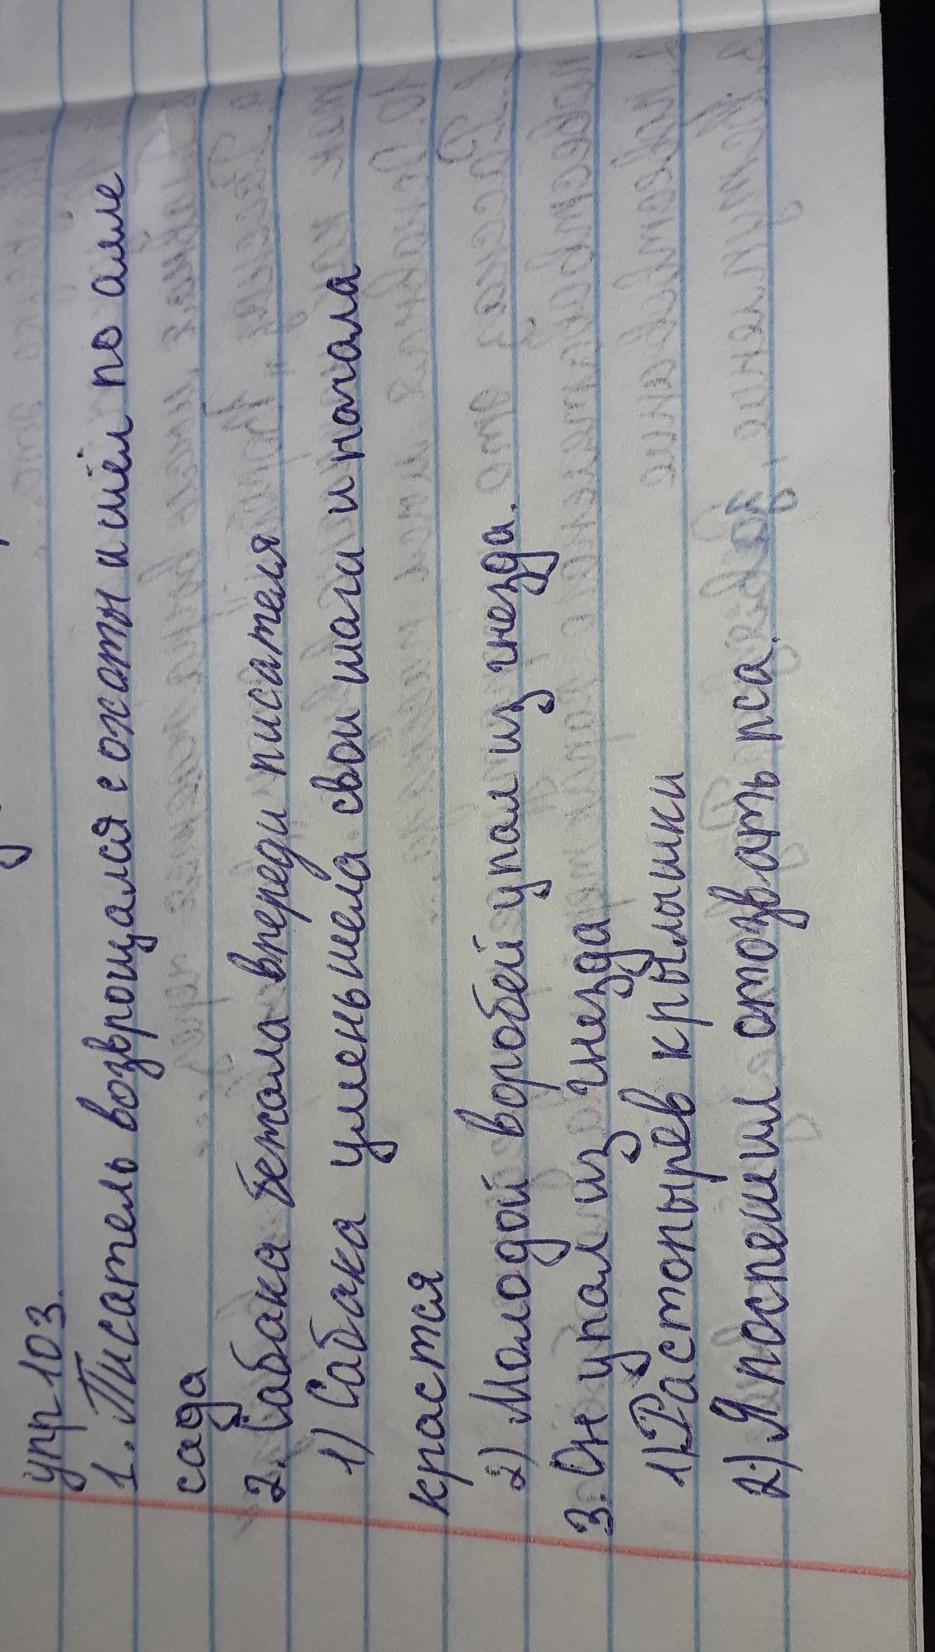 упр 103.
1. Писатель возврощался с охоты и шёл по алле
сада
2. Сабака бегала впереди писателя
1) Сабака уменьшела свои шаги и начала
красться
2) Молодой воробей упал из гнезда.
3. Он упал из гнезда
1) Растопырев крылышки
2) Я поспешил отозвать пса.